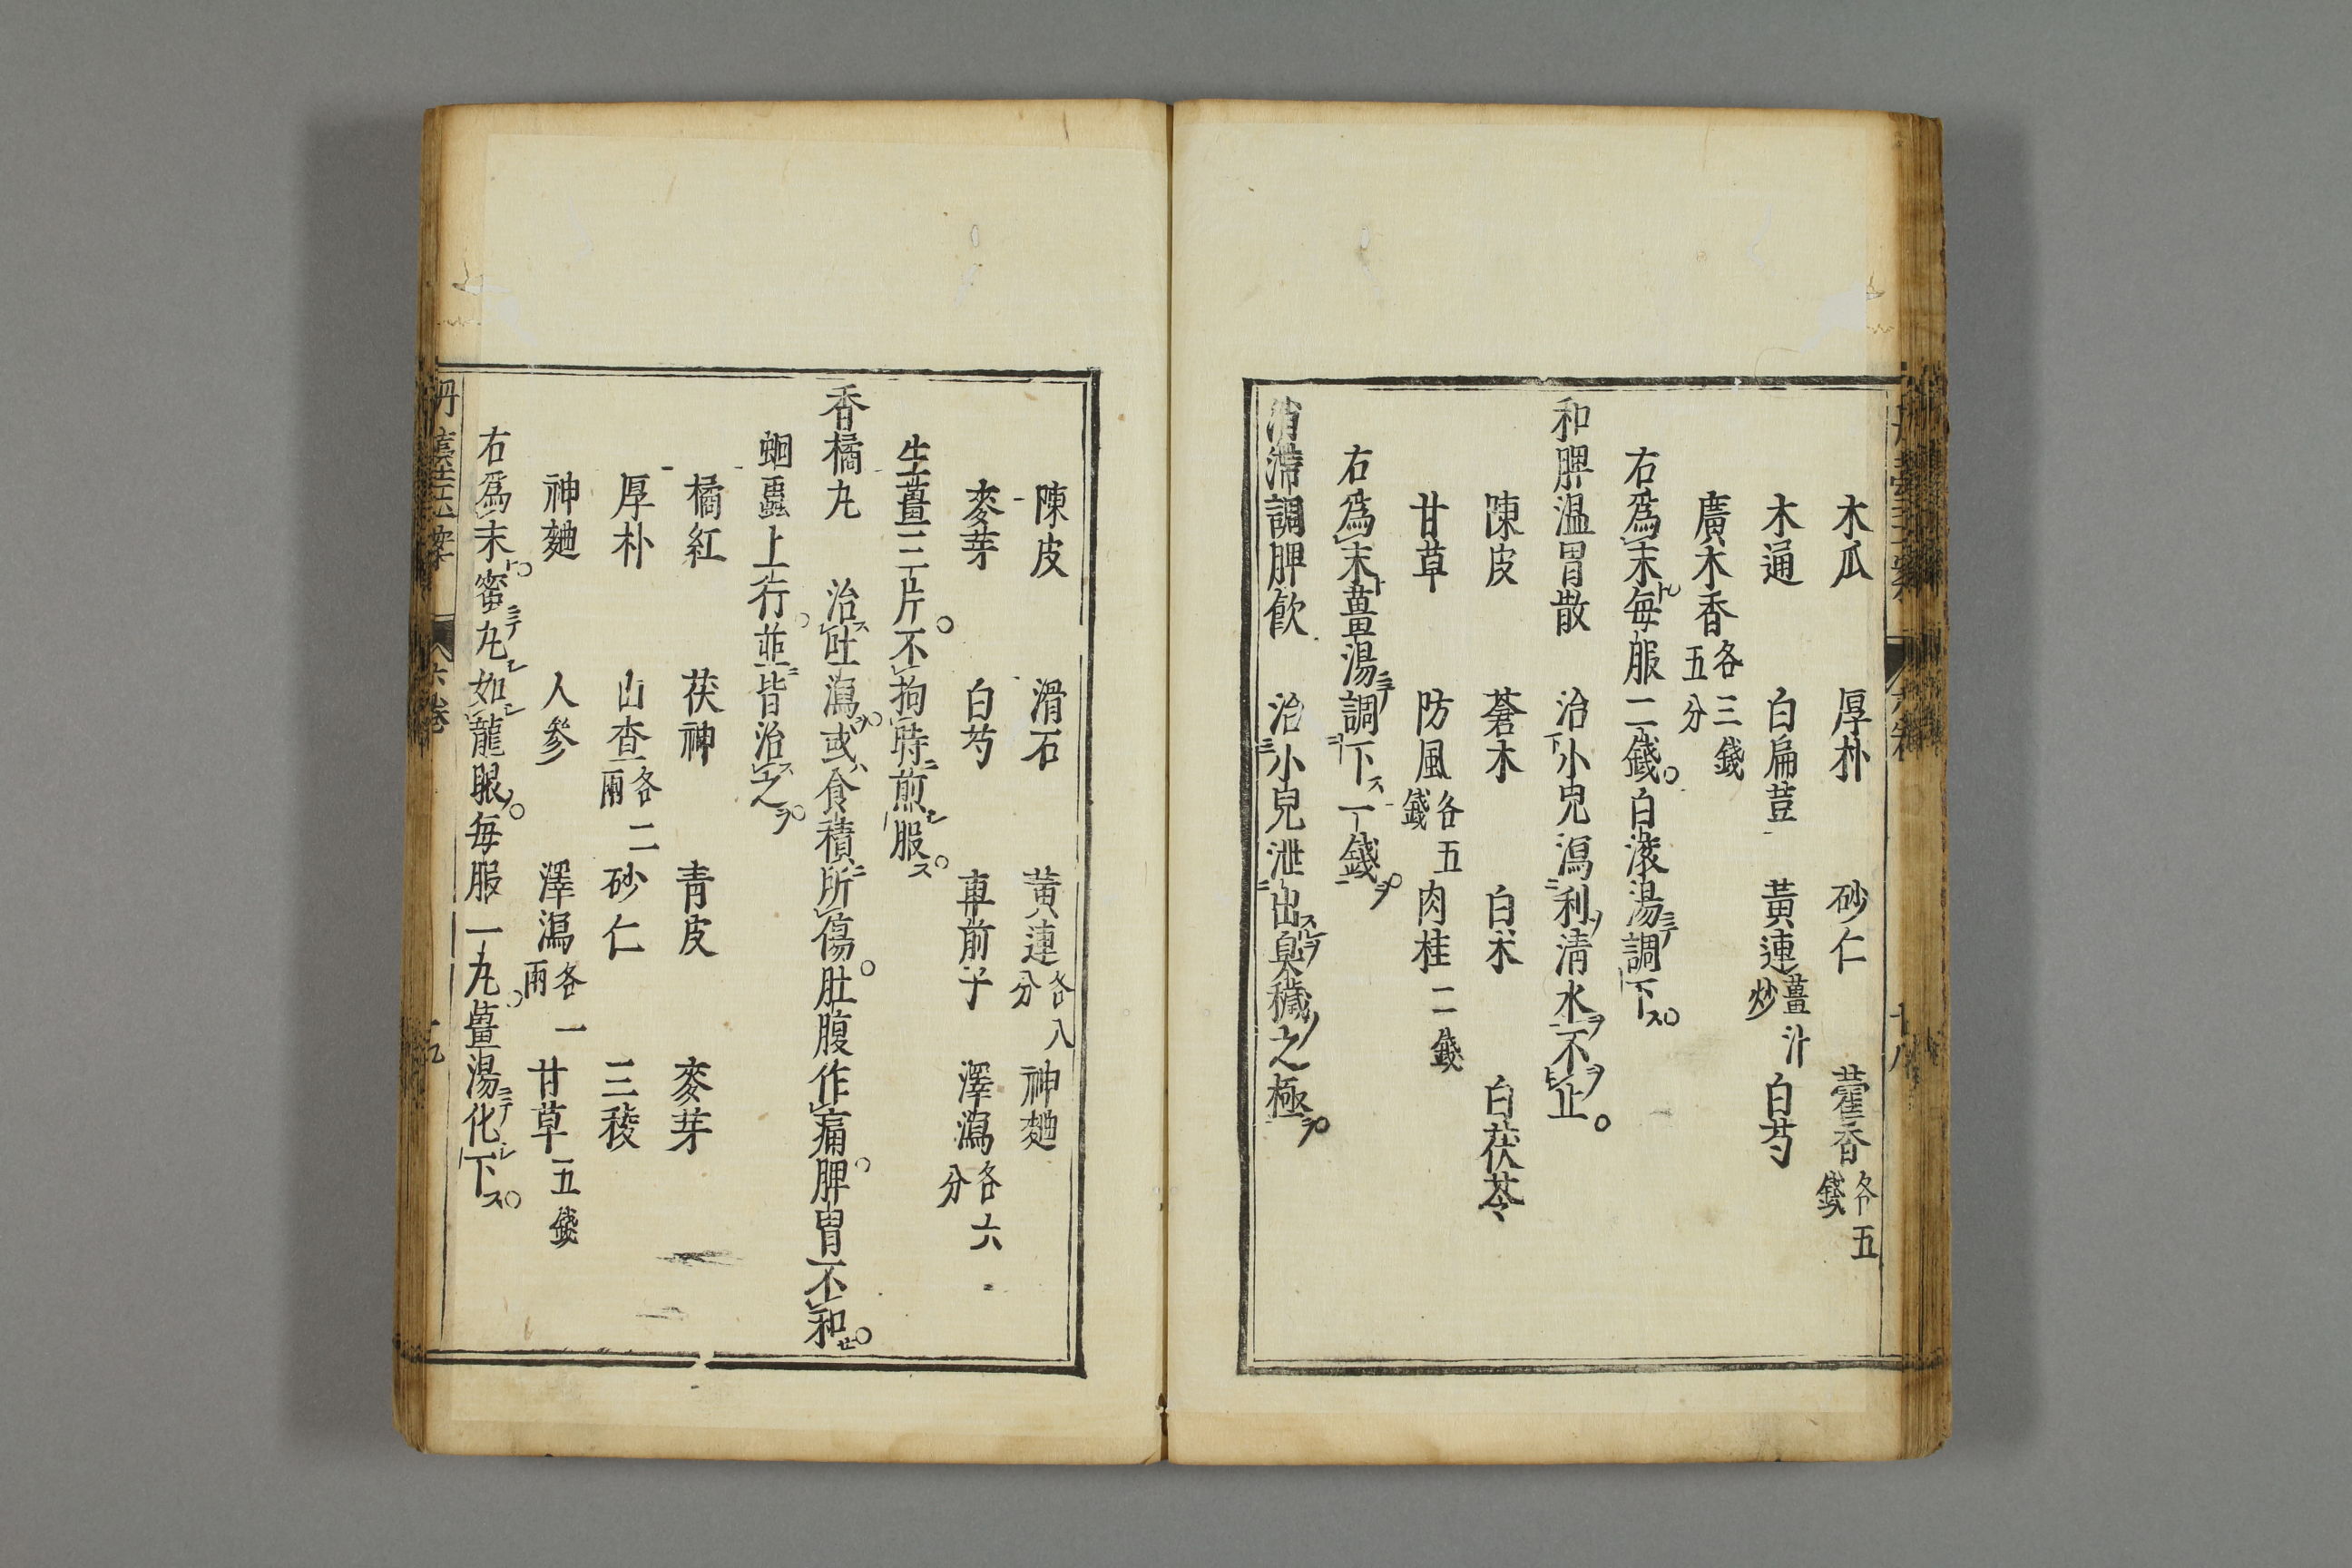 木瓜　厚朴　砂仁　藿香各五錢
木通　白扁荳　黃連薑汁炒　白芍
廣木香各三錢五分
右爲末毎服二錢白滚湯調下
和脾温胃散　治小兒瀉利清水不止
陳皮　蒼木　白朮　白茯苓
甘草　防風各五錢　肉桂二錢
右爲末薑湯調下一錢
消滯調脾飲　治小兒泄出臭穢之極
陳皮　滑石　黃連各八分　神麯
麥芽　白芍　車前子　澤瀉各六分
生薑三片不拘時煎服
香橘丸　治吐瀉或食積所傷肚腹作痛脾胃不和
蛔蟲上行並皆治之
橘紅　茯神　青皮　麥芽
厚朴　山查各二兩　砂仁　三稜
神麯　人參　澤瀉各一兩　甘草五錢
右爲末蜜丸如龍眼毎服一丸薑湯化下
丹臺玉案　六卷　十九